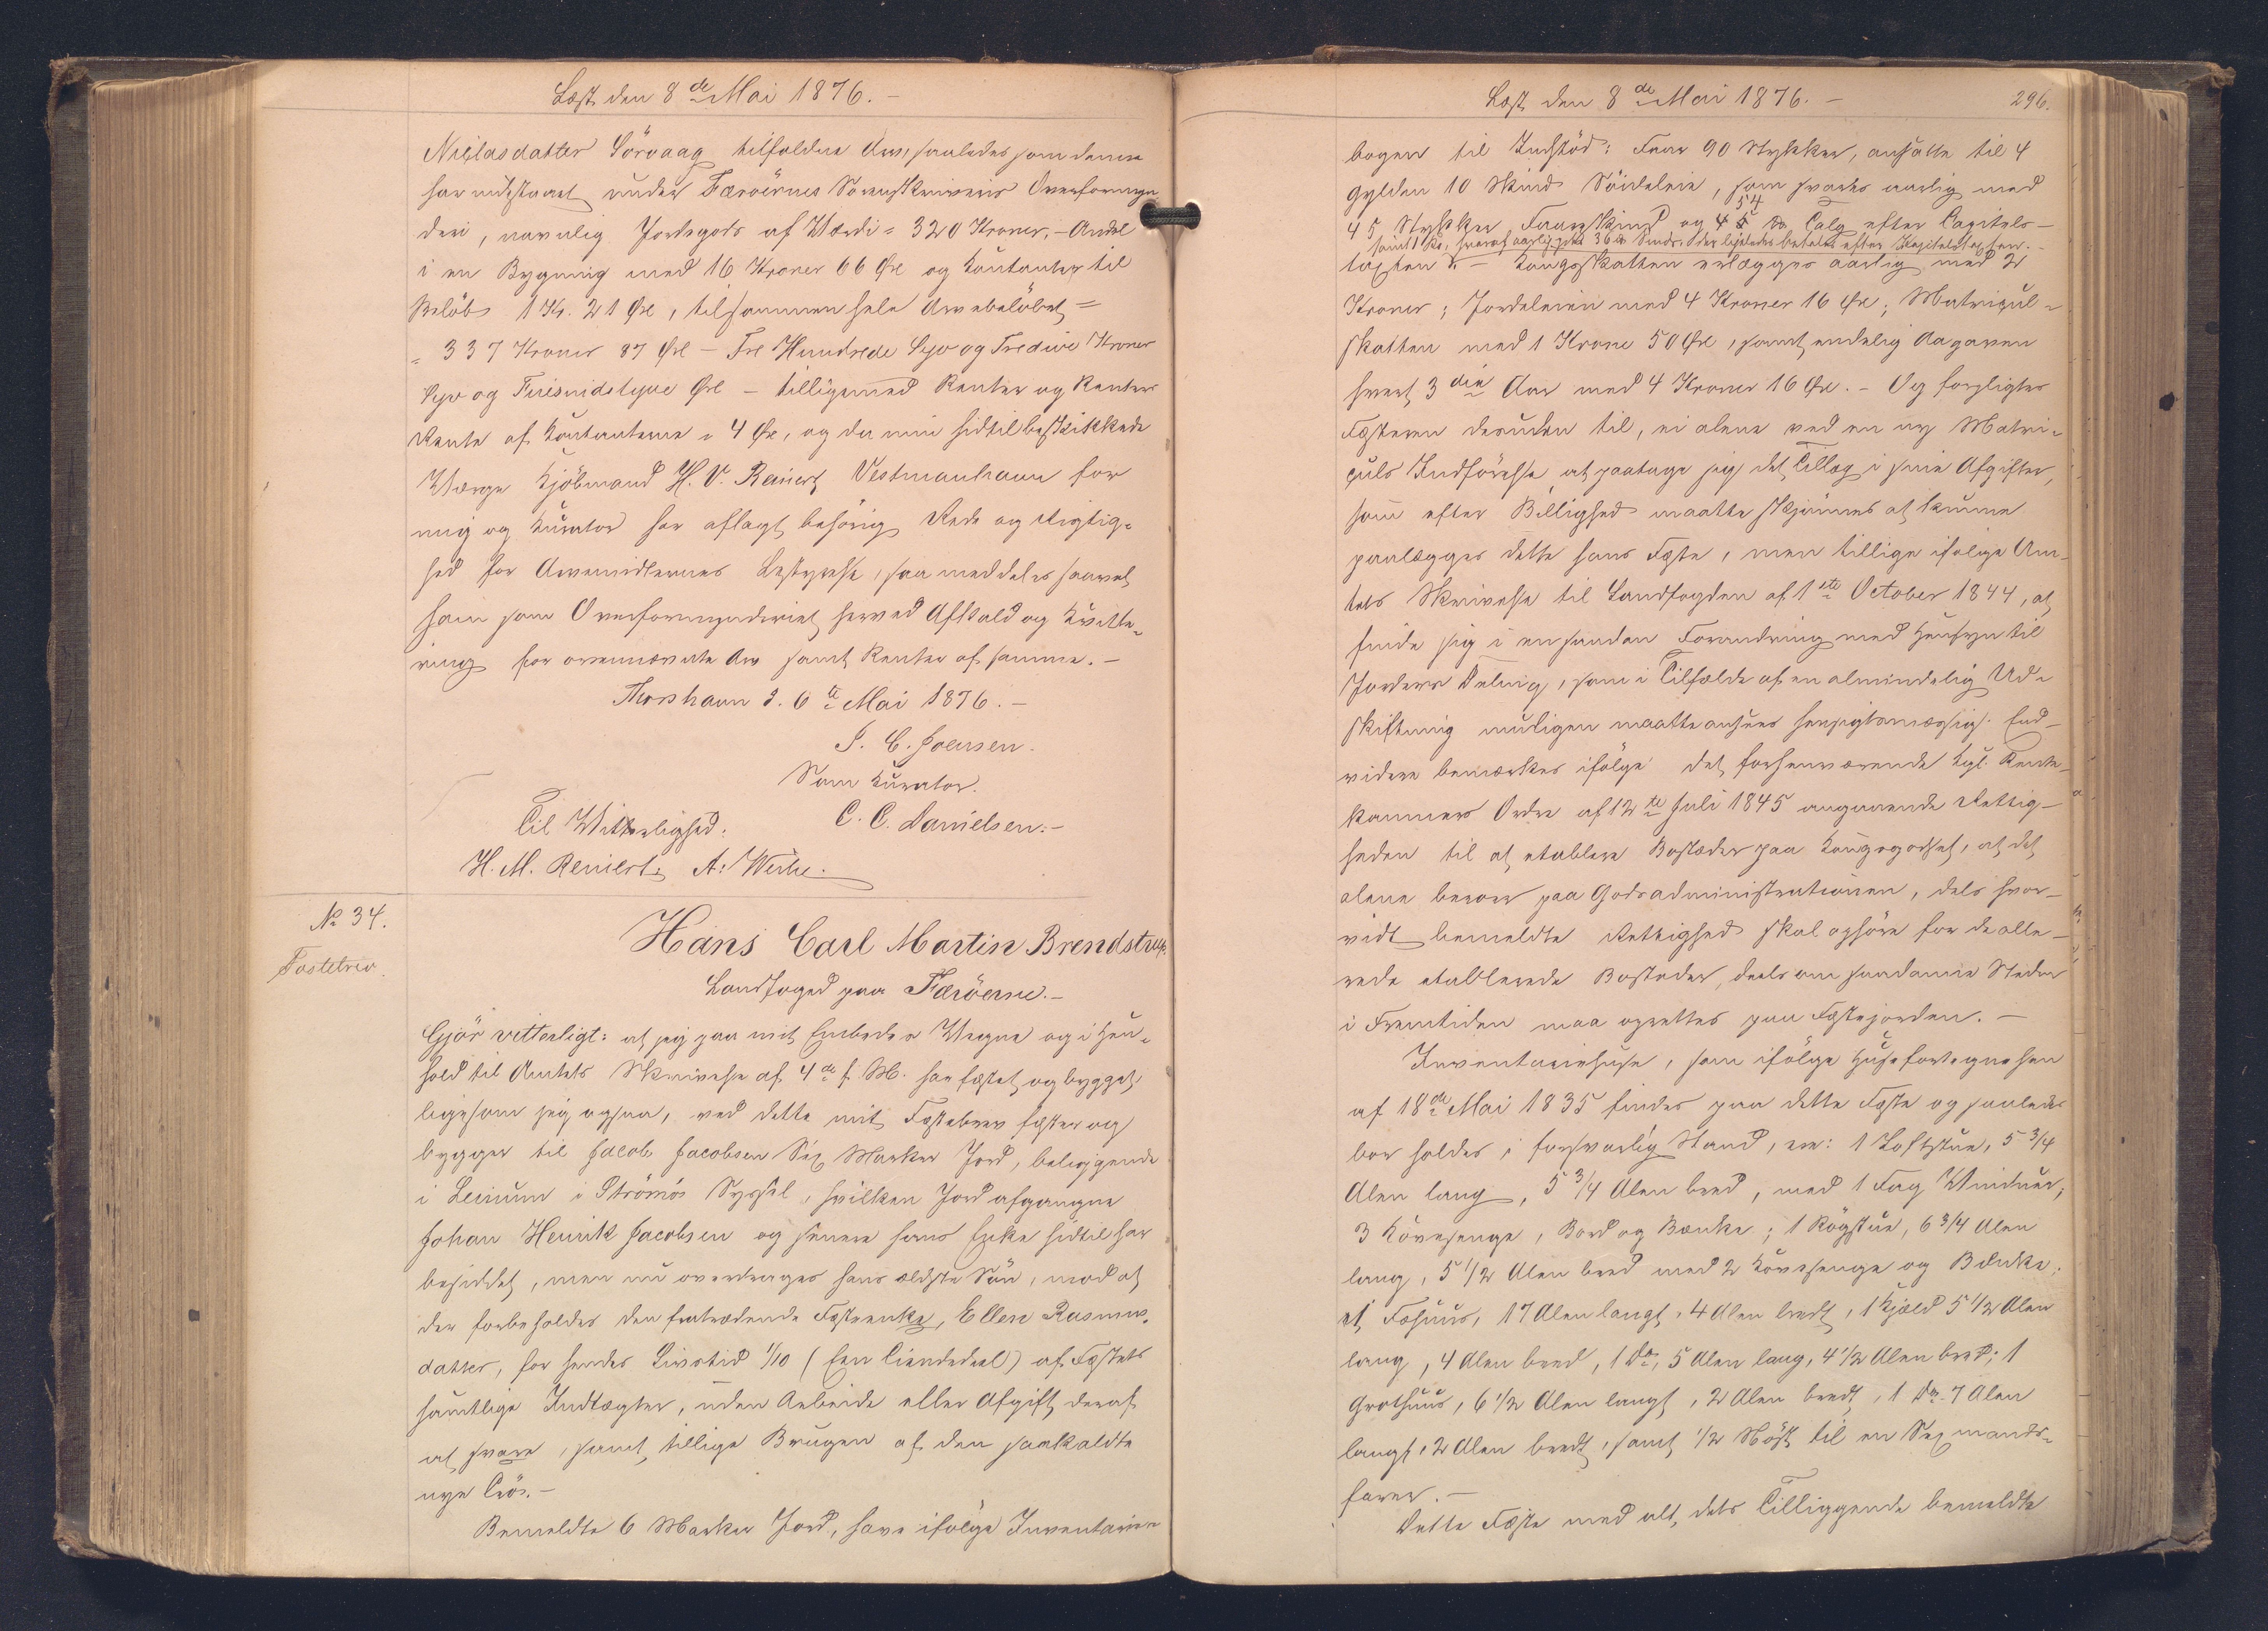 Læst den 8de Mai 1876. –
Niclasdatter Sörvaag tilfaldne Arv, saaledes som denne
har indestaaet under Færöernes Sorenskriveris Overformyn
deri, navnlig Jordegods af Værdi = 320 Kroner, – Andel
i en Bygning med 16 Kroner 66 Øre og Kontanter til
Beløb 1 Kr. 21 Øre, tilsammen hele Arvebelöbet =
= 337 Kroner 87 Øre – Tre Hundrede Syv og Tredive Kroner
Syv og Fiirsindstyve Øre – tilligemed Renter og Renters
Rente af Kontanterne = 4 Øre, og da min hidtil beskikkede
Værge Kjöbmand H. V. Reinert Vestmanhavn for
mig og Kurator har aflagt behörig Rede og Rigtig-
hed for Arvemidlernes Bestyrelse, saa meddeles saavel
ham som Overformynderiet herved Afkald og Kvitte-
ring for ovennævnte Arv samt Renter af samme. –
Thorshavn d. 6te Mai 1876. –
J. C. Joensen.
Som Kurator.
Til Vitterlighed: C. C. Danielsen. –
H. M. Reinert. A: Weihe.
No 34.
Fæstebrev.
Hans Carl Martin Brendstrup.
Landfoged paa Færöerne. –
Gjör vitterligt: at jeg paa mit Embedes Vegne og i Hen-
hold til Amtets Skrivelse af 4de d. M. har fæstet og bygget,
ligesom jeg ogsaa, ved dette mit Fæstebrev fæster og
bygger til Jacob Jacobsen Sex Marker Jord, beliggende
i Leinum i Strömös Syssel, hvilken Jord afgangne
Johan Henrik Jacobsen og senere hans Enke hidtil har
besiddet, men nu overdrages hans ældste Sön, mod at
der forbeholdes den fratrædende Fæsteenke, Ellen Rasmus-
datter, for hendes Livstid 1/10 (Een Tiendedeel) af Fæstets
samtlige Indtægter, uden Arbeide eller Afgift deraf
at svare, samt tillige Brugen af den saakaldte
nye Trö. –
Bemeldte 6 Marker Jord, have ifölge Inventarien
Læst den 8de Mai 1876. –
296.
bogen til Indstöd: Faar 90 Stykker, ansatte til 4
Gylden 10 Skind Söideleie, som svares aarlig med
54
45 Stykker Faareskind og 4 5 ℔ Talg efter Capitels-
samt 1 Ko, hvoraf aarlig ydes 36 ℔ Smör, der ligeledes betales efter Kapitelstaxten. –
taxten. – Kongsskatten erlægges aarlig med 2
Kroner; Jordeleien med 4 Kroner 16 Øre; Matricul-
skatten med 1 Krone 50 Øre, samt endelig Aagaven
hvert 3die Aar med 4 Kroner 16 Øre. – Og forpligtes
Fæsteren desuden til, ei alene ved en ny Matri-
culs Indförelse at paatage sig det Tillæg i sine Afgifter,
som efter Billighed maatte skjönnes at kunne
paalægges dette hans Fæste, men tillige ifölge Am-
tets Skrivelse til Landfogden af 1ste October 1844, at
finde sig i en saadan Forandring med Hensyn til
Jordens Deling, som i Tilfælde af en almindelig Ud-
skiftning muligen maatte ansees hensigtsmæssig. End-
videre bemærkes ifölge det forhenværende Kgl. Rente-
kammers Ordre af 12te Juli 1845 angaaende Rettig-
heden til at etablere Bosteder paa Kongsgodset, at det
alene beroer paa Godsadministrationen, dels hvor-
vidt bemeldte Rettighed skal ophöre for de alle-
rede etablerede Bosteder, deels om saadanne Steder
i Fremtiden maa oprettes paa Fæstejorden. –
Inventariihuse, som ifölge Husefortegnelsen
af 18de Mai 1835 findes paa dette Fæste og saaledes
bör holdes i forsvarlig Stand, ere: 1 Loftstue, 5 3/4
Alen lang, 5 3/4 Alen bred, med 1 Fag Vinduer,
3 Kovesenge, Bord og Bænke; 1 Rögstue, 6 3/4 Alen
lang, 5 1/2 Alen bred med 2 Kovesenge og Bænke;
et Fæhuus, 17 Alen langt, 4 Alen bredt, 1 Hjæld 5 1/2 Alen
lang, 4 Alen bred, 1 Do, 5 Alen lang, 4 1/2 Alen bred; 1
Grothuus, 6 1/2 Alen langt, 2 Alen bredt, 1 Do. 7 Alen
langt, 2 Alen bredt, samt 1/2 Nöst til en Sex mands-
farer. –
Dette Fæste med alt, dets Tilliggende bemeldte